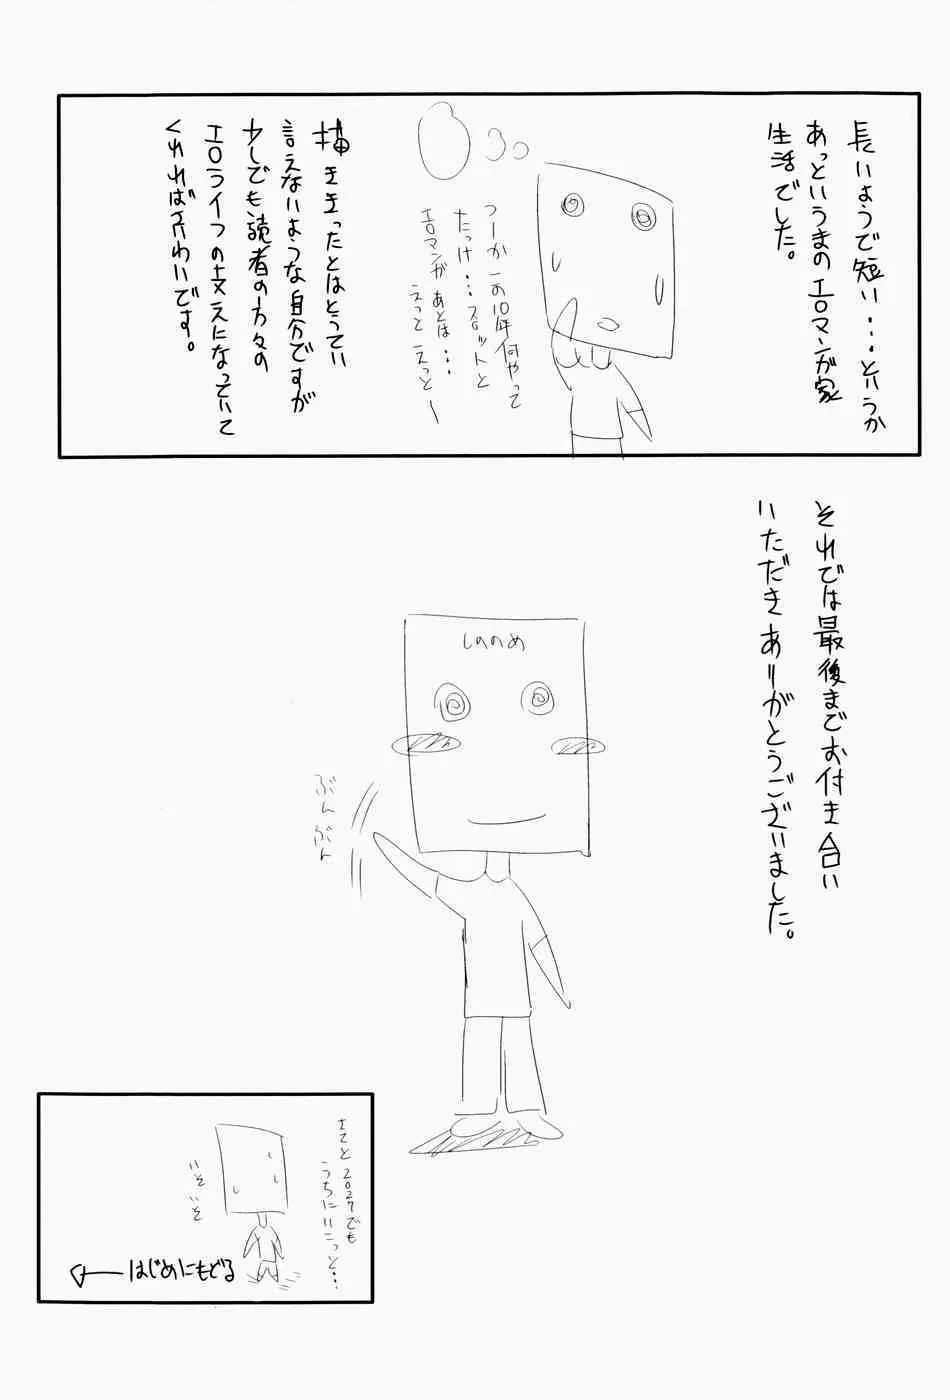 長いようで短い・・・というか
あっというまのエロマンガ家
生活でした。
つーかこの10年何やって
たっけ・・・スロットと
エロマンガ あとは・・・
えっと えっと〜
描ききったとはとうてい
言えないような自分ですが
少しでも読者の方々の
エロライフの支えになっていて
くれればさいわいです。
それでは最後までお付き合い
いただきありがとうございました。
しののめ
ぶんぶん
さてと 2027でも
うちにいこっと・・・
いそいそ
はじめにもどる